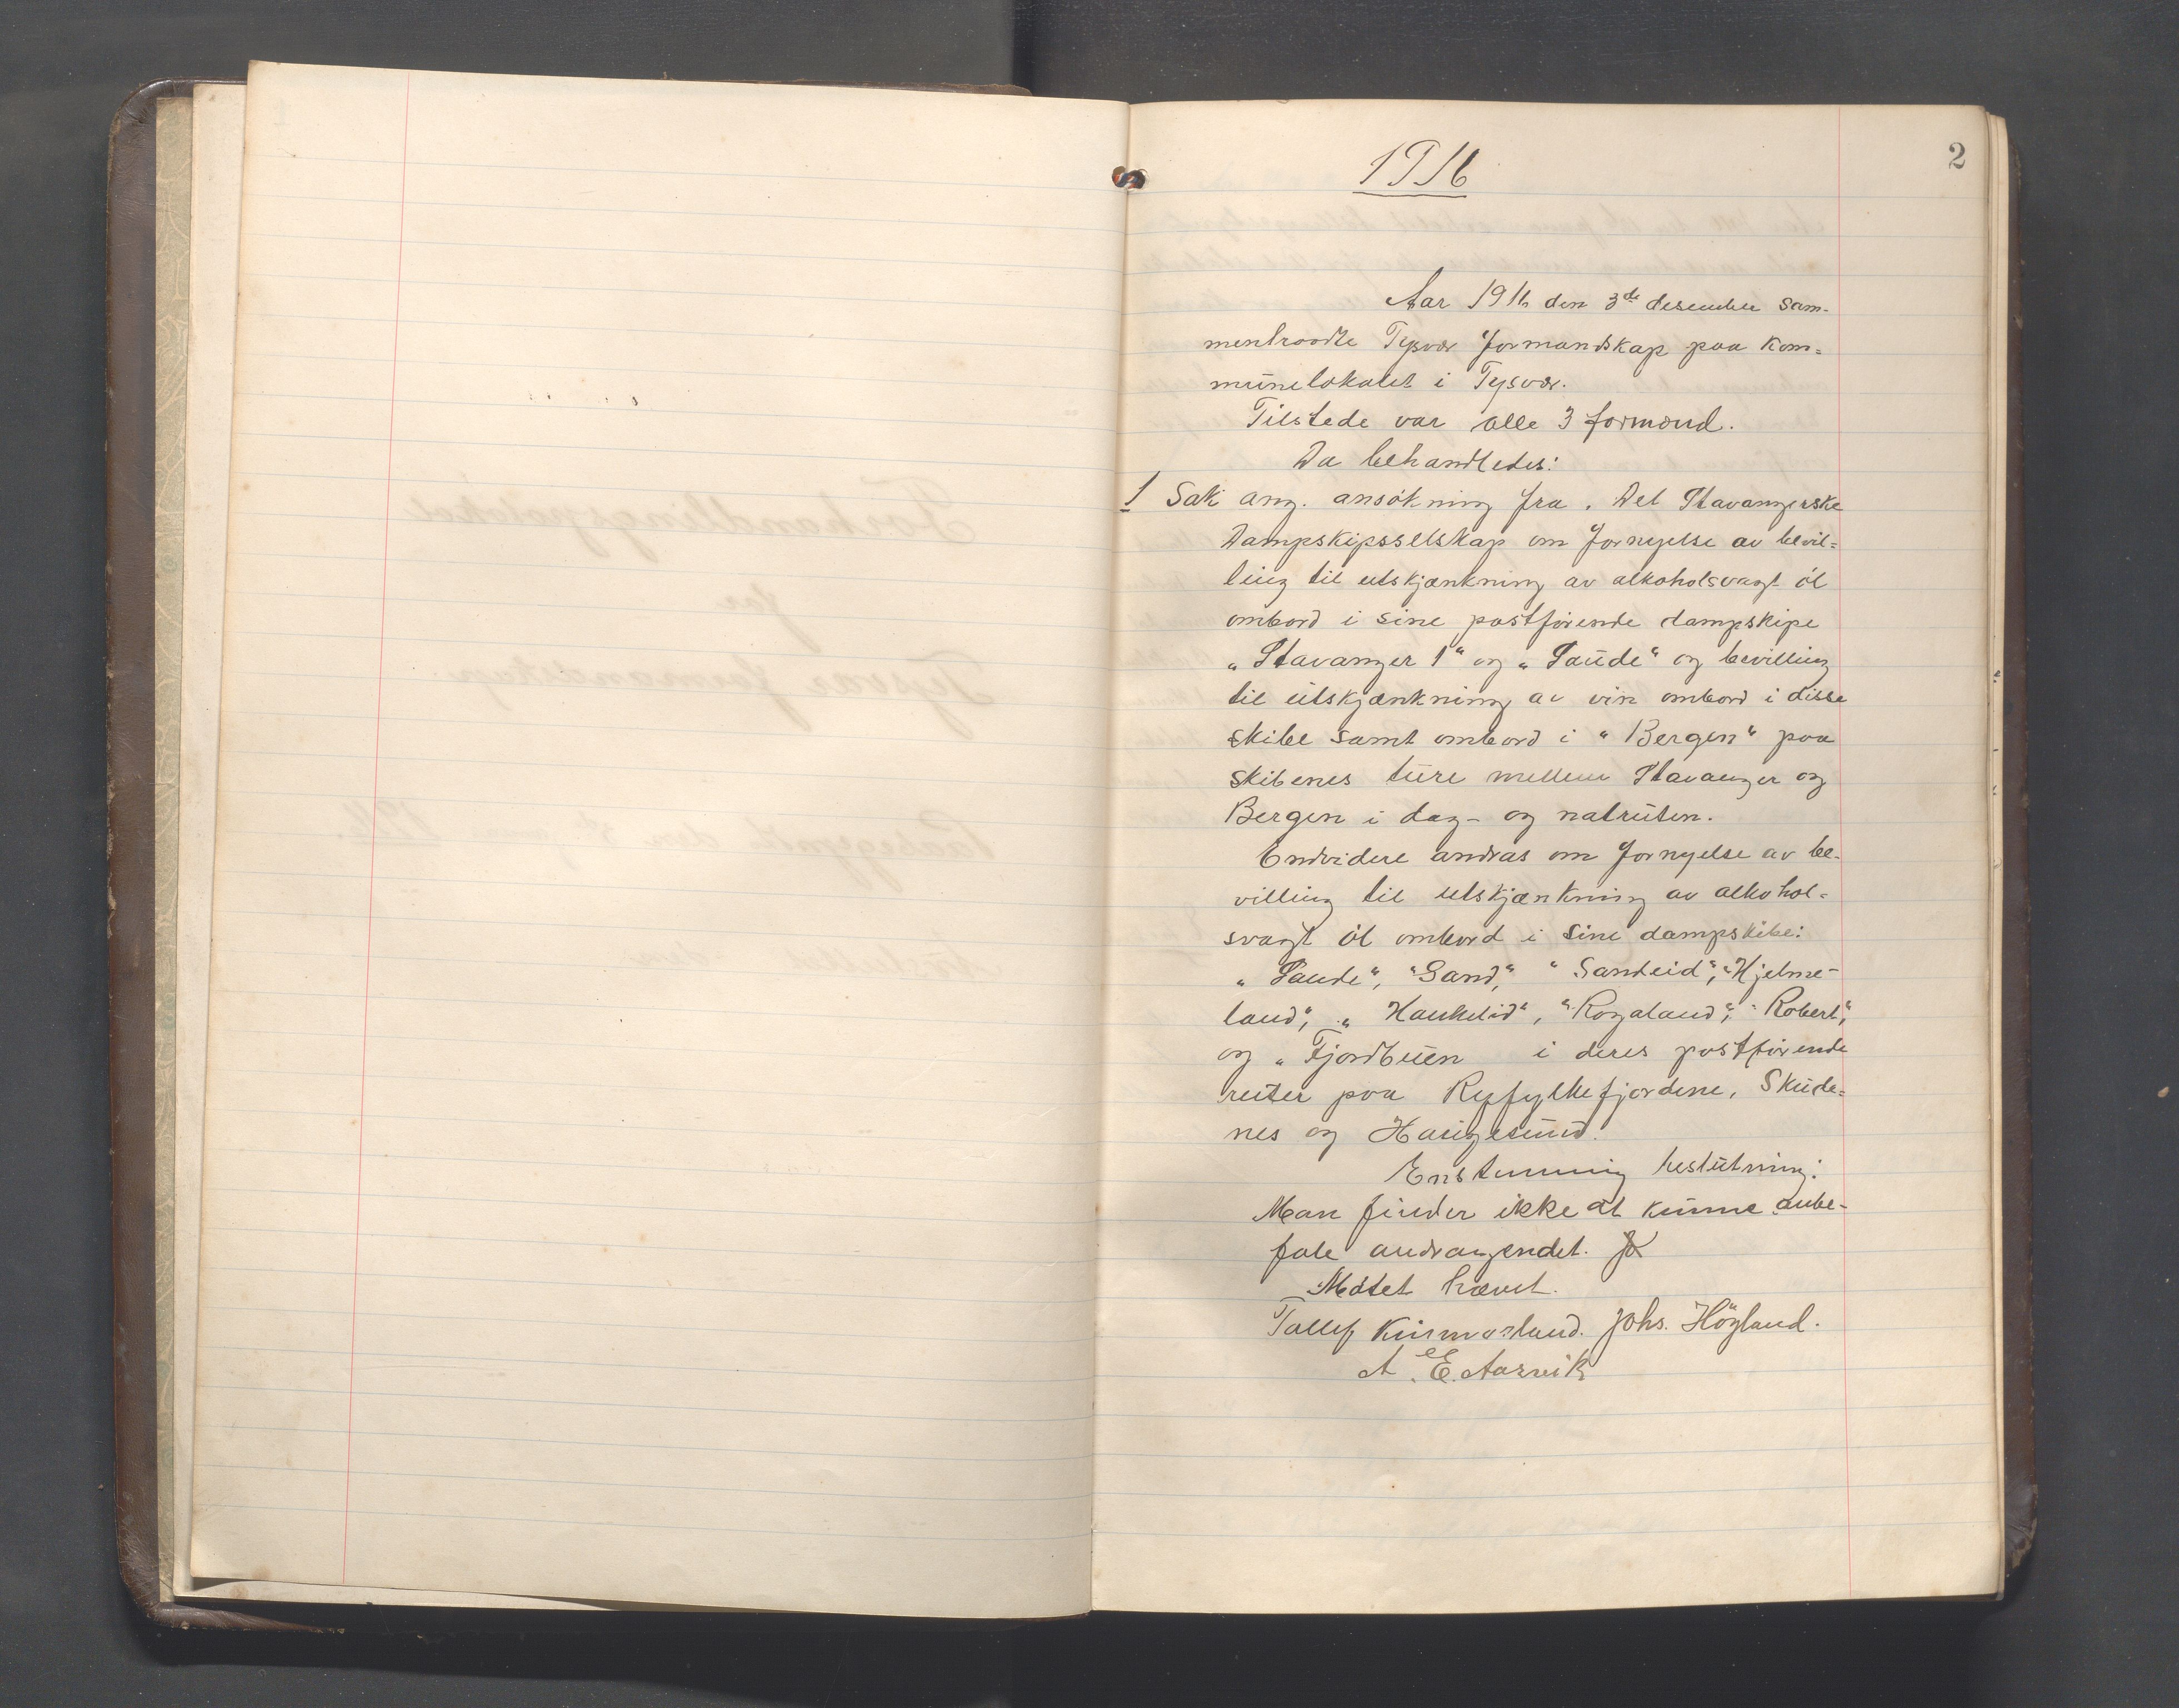 1916
2
Aar 1916 den 3de desember sam-
mentraadte Tysvær formandskap paa kom=
munelokalet i Tysvær.
Tilstede var alle 3 formænd.
Da behandledes:
1 Sak ang. ansökning fra. Det Stavangerske
Dampskipsselskap om fornyelse av bevil=
ling til utskjænkning av alkoholsvagt öl
ombord i sine postförende dampskipe
„Stavanger 1“ og „Saude“ og bevilling
til utskjænkning av vin ombord i disse
skibe samt ombord i “Bergen“ paa
skibenes ture mellem Stavanger og
Bergen i dag- og natruten.
Endvidere andras om fornyelse av be-
villing til utskjænkning av alkohol=
svagt öl ombord i sine dampskibe:
„Saude“, “Sand“, “Sandeid“, “Hjelme-
land“, „Haukelid“, “Rogaland“, “Robert“,
og „Fjordbuen i deres postförende
ruter paa Ryfylkefjordene, Skude=
nes og Haugesund.
Enstemmig beslutning:
Man finder ikke at kunne anbe-
fale andragendet.
Mötet hævet.
Tollef Kurmarland. Johs. Höyland.
A. E. Aarvik
Forhandlingsprotokol
for
Tysvær formandskap